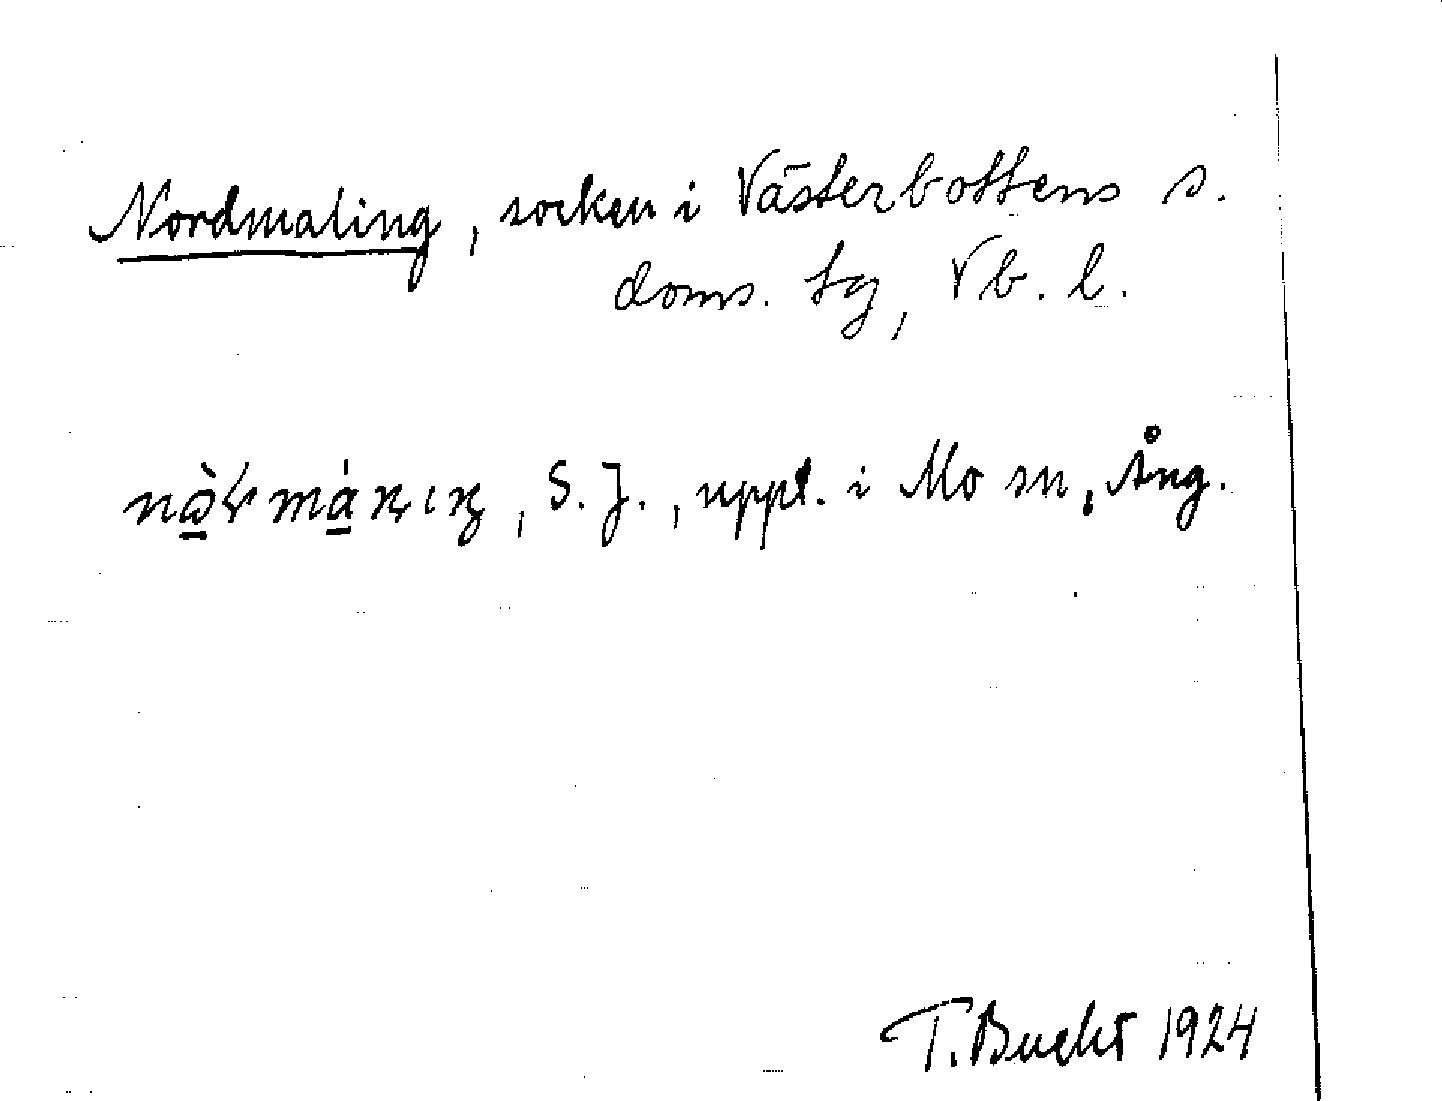 Nordmaling, socken i Västerbottens s.
doms. tg, Vb. l.
S. J., uppt. i Mo sn, Ång.
T. Bucht 1924